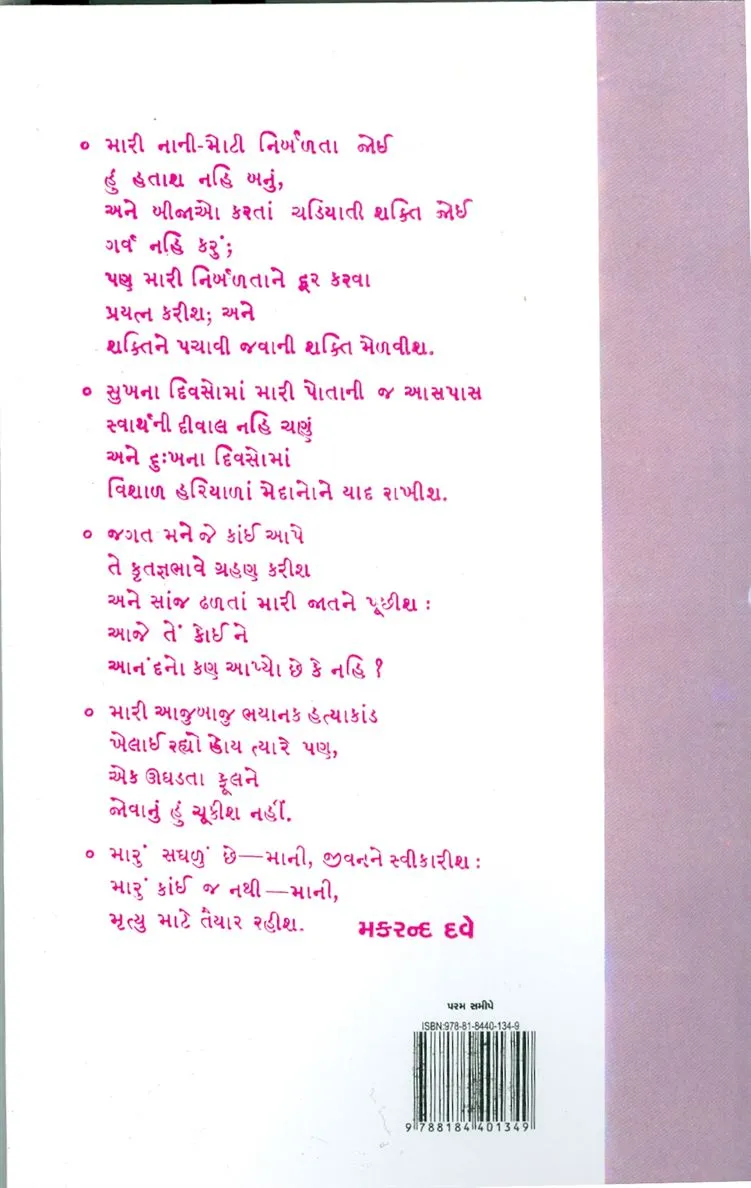 ° મારી નાની-મોટી નિર્બળતા જોઈ
હું હતાશ નહિ બનું,
અને બીજાઓ કરતાં ચડિયાતી શક્તિ જોઈ
ગર્વ નહિ કરું;
પણ મારી નિર્બળતાને દૂર કરવા
પ્રયત્ન કરીશ; અને
શક્તિને પચાવી જવાની શક્તિ મેળવીશ.
° સુખના દિવસોમાં મારી પોતાની જ આસપાસ
સ્વાર્થની દીવાલ નહિ ચણું
અને દુઃખના દિવસોમાં
વિશાળ હરિયાળાં મેદાનોને યાદ રાખીશ.
° જગત મને જે કાંઈ આપે
તે કૃતજ્ઞભાવે ગ્રહણ કરીશ
અને સાંજ ઢળતાં મારી જાતને પૂછીશ :
આજે તેં કોઈને
આનંદનો કણ આપ્યો છે કે નહિ ?
° મારી આજુબાજુ ભયાનક હત્યાકાંડ
ખેલાઈ રહ્યો હોય ત્યારે પણ,
એક ઊઘડતા ફૂલને
જોવાનું હું ચૂકીશ નહીં.
° મારું સઘળું છે—માની, જીવનને સ્વીકારીશ :
મારું કાંઈ જ નથી—માની,
મૃત્યુ માટે તૈયાર રહીશ. મકરન્દ દવે
પરમ સમીપે
ISBN:978-81-8440-134-9
9 788184 401349